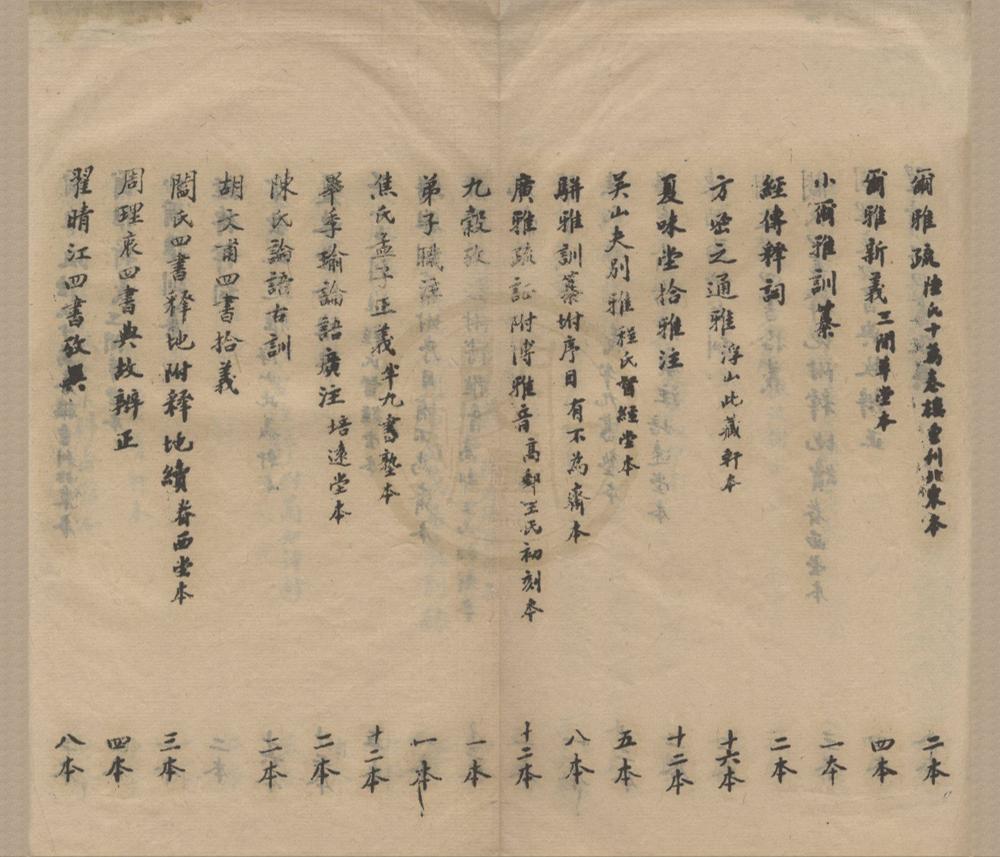 爾雅疏 陸氏十萬卷樓重刊北宋本 二本
爾雅新義 三間草堂本 四本
小爾雅訓纂 一本
經傳釋詞 二本
方密之通雅 浮山此藏軒本 十六本
夏味堂拾雅注 十二本
吳山夫別雅 程氏督經堂本 五本
駢雅訓纂坿序目 有不為齋本 八本
廣雅疏証附博雅音 高郵王氏初刻本 十二本
九穀攷 一本
弟子職 一本
焦氏孟子正義 半九書塾本 十二本
畢季瑜論語廣注 培遠堂本 二本
陳氏論語古訓 二本
胡文甫四書拾義
閻氏四書釋地附釋地續 眷西堂本 三本
周理衷四書典故辨正 四本
翟晴江四書攷異 八本